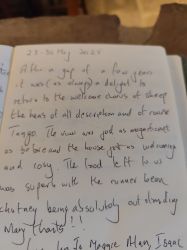 28-30 May 2025
After a gap of a few years
it was (as always) a delight to
return to the welcome chorus of sheep
the bees of all description and of course
Tango. The view was just as magnificent
as before and the house just as welcoming
and cosy. The food left to us
was superb with the runner bean
chutney being absolutely outstanding
Many thanks!!
Maggie Alan, Isaac